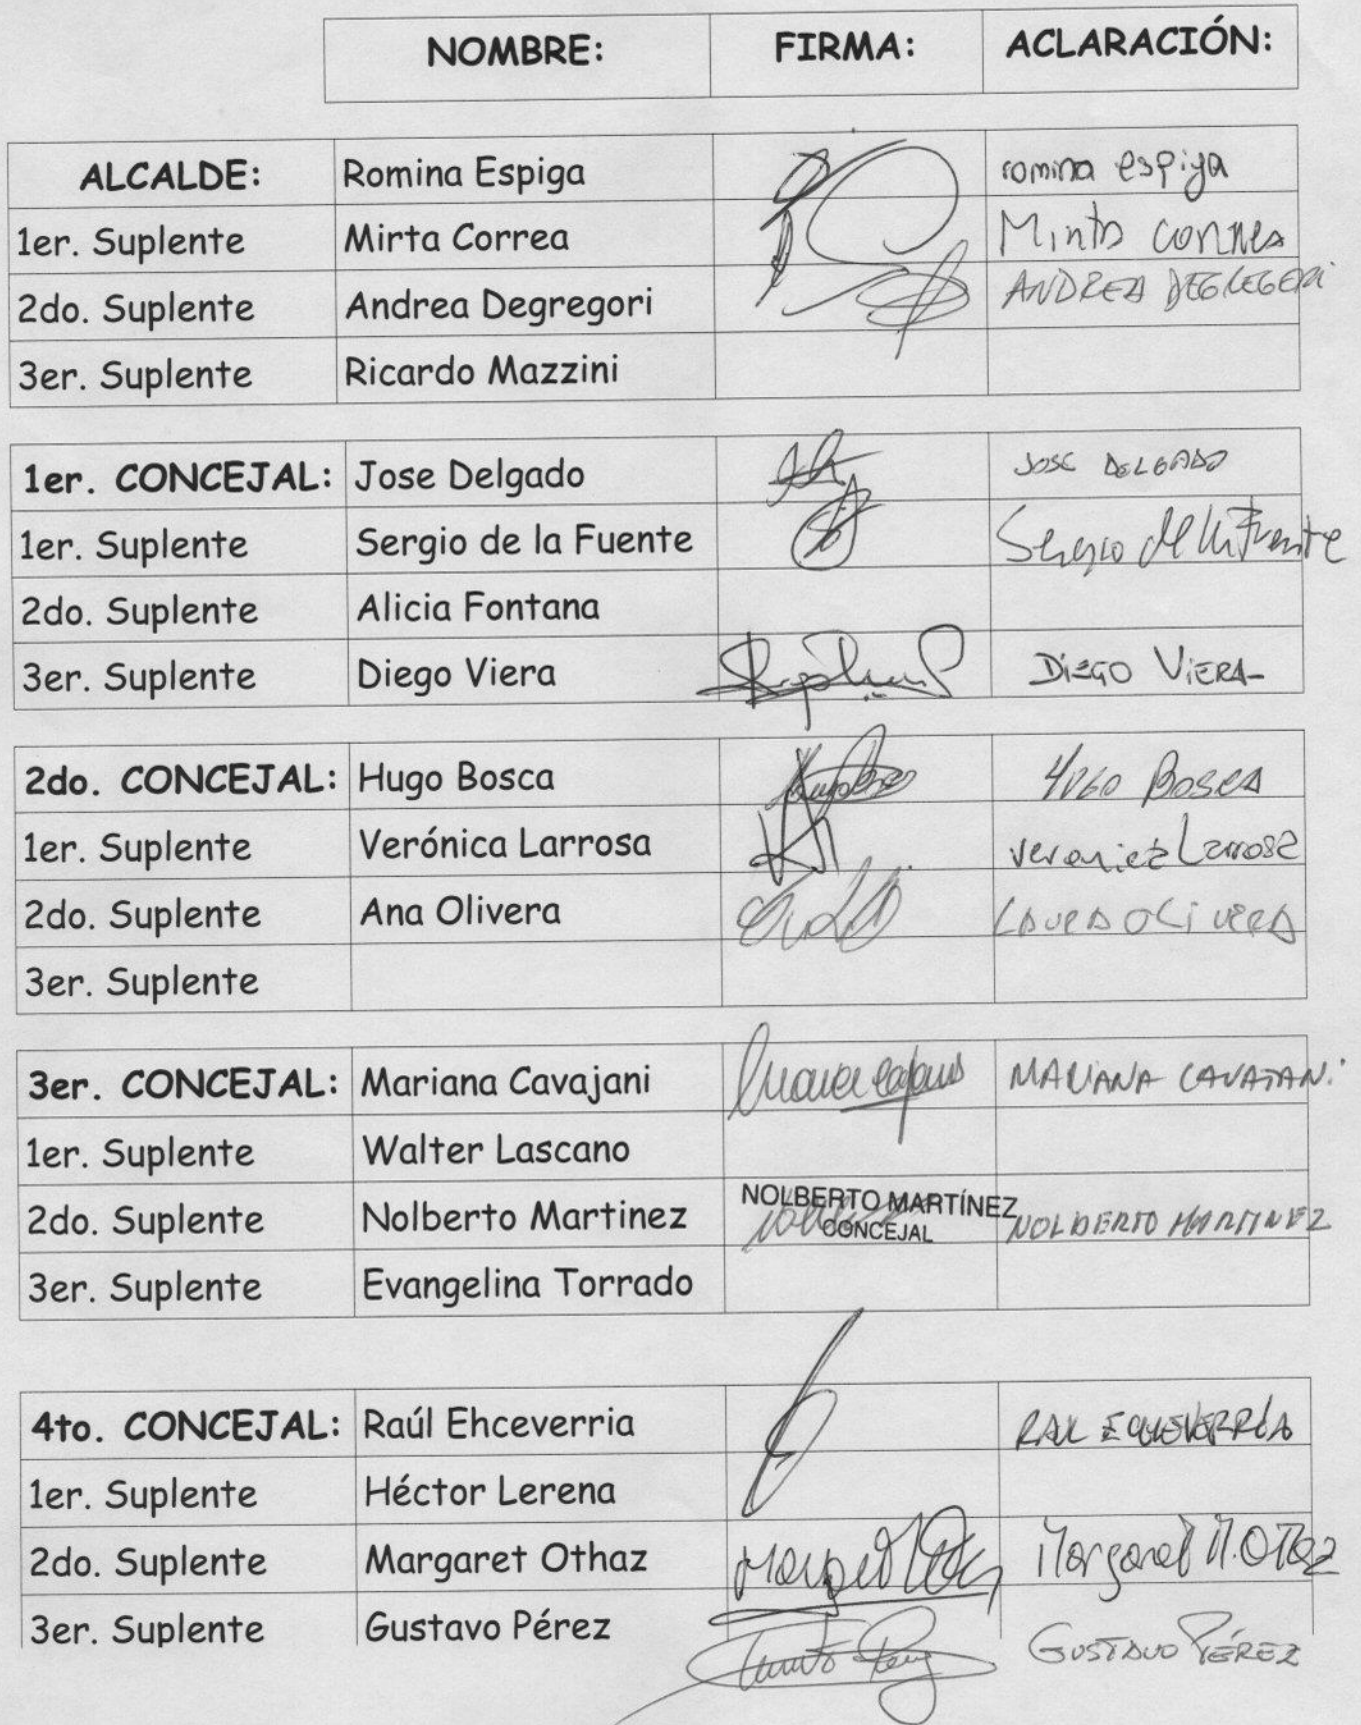 NOMBRE: FIRMA: ACLARACIÓN:
ALCALDE: Romina Espiga romina espiga
1er. Suplente Mirta Correa Mirta Correa
2do. Suplente Andrea Degregori ANDREA DEGREGORI
3er. Suplente Ricardo Mazzini
1er. CONCEJAL: Jose Delgado JOSE DELGADO
1er. Suplente Sergio de la Fuente Sergio de la Fuente
2do. Suplente Alicia Fontana
3er. Suplente Diego Viera DIEGO VIERA-
2do. CONCEJAL: Hugo Bosca HUGO BOSCA
1er. Suplente Verónica Larrosa veronica Larrosa
2do. Suplente Ana Olivera LAURA OLIVERA
3er. Suplente
3er. CONCEJAL: Mariana Cavajani MARIANA CAVAJANI
1er. Suplente Walter Lascano
2do. Suplente Nolberto Martinez NOLBERTO MARTÍNEZ NOLBERTO MARTINEZ
CONCEJAL
3er. Suplente Evangelina Torrado
4to. CONCEJAL: Raúl Ehceverria RAUL ECHEVERRIA
1er. Suplente Héctor Lerena
2do. Suplente Margaret Othaz Margaret M. Othaz
3er. Suplente Gustavo Pérez GUSTAVO PÉREZ